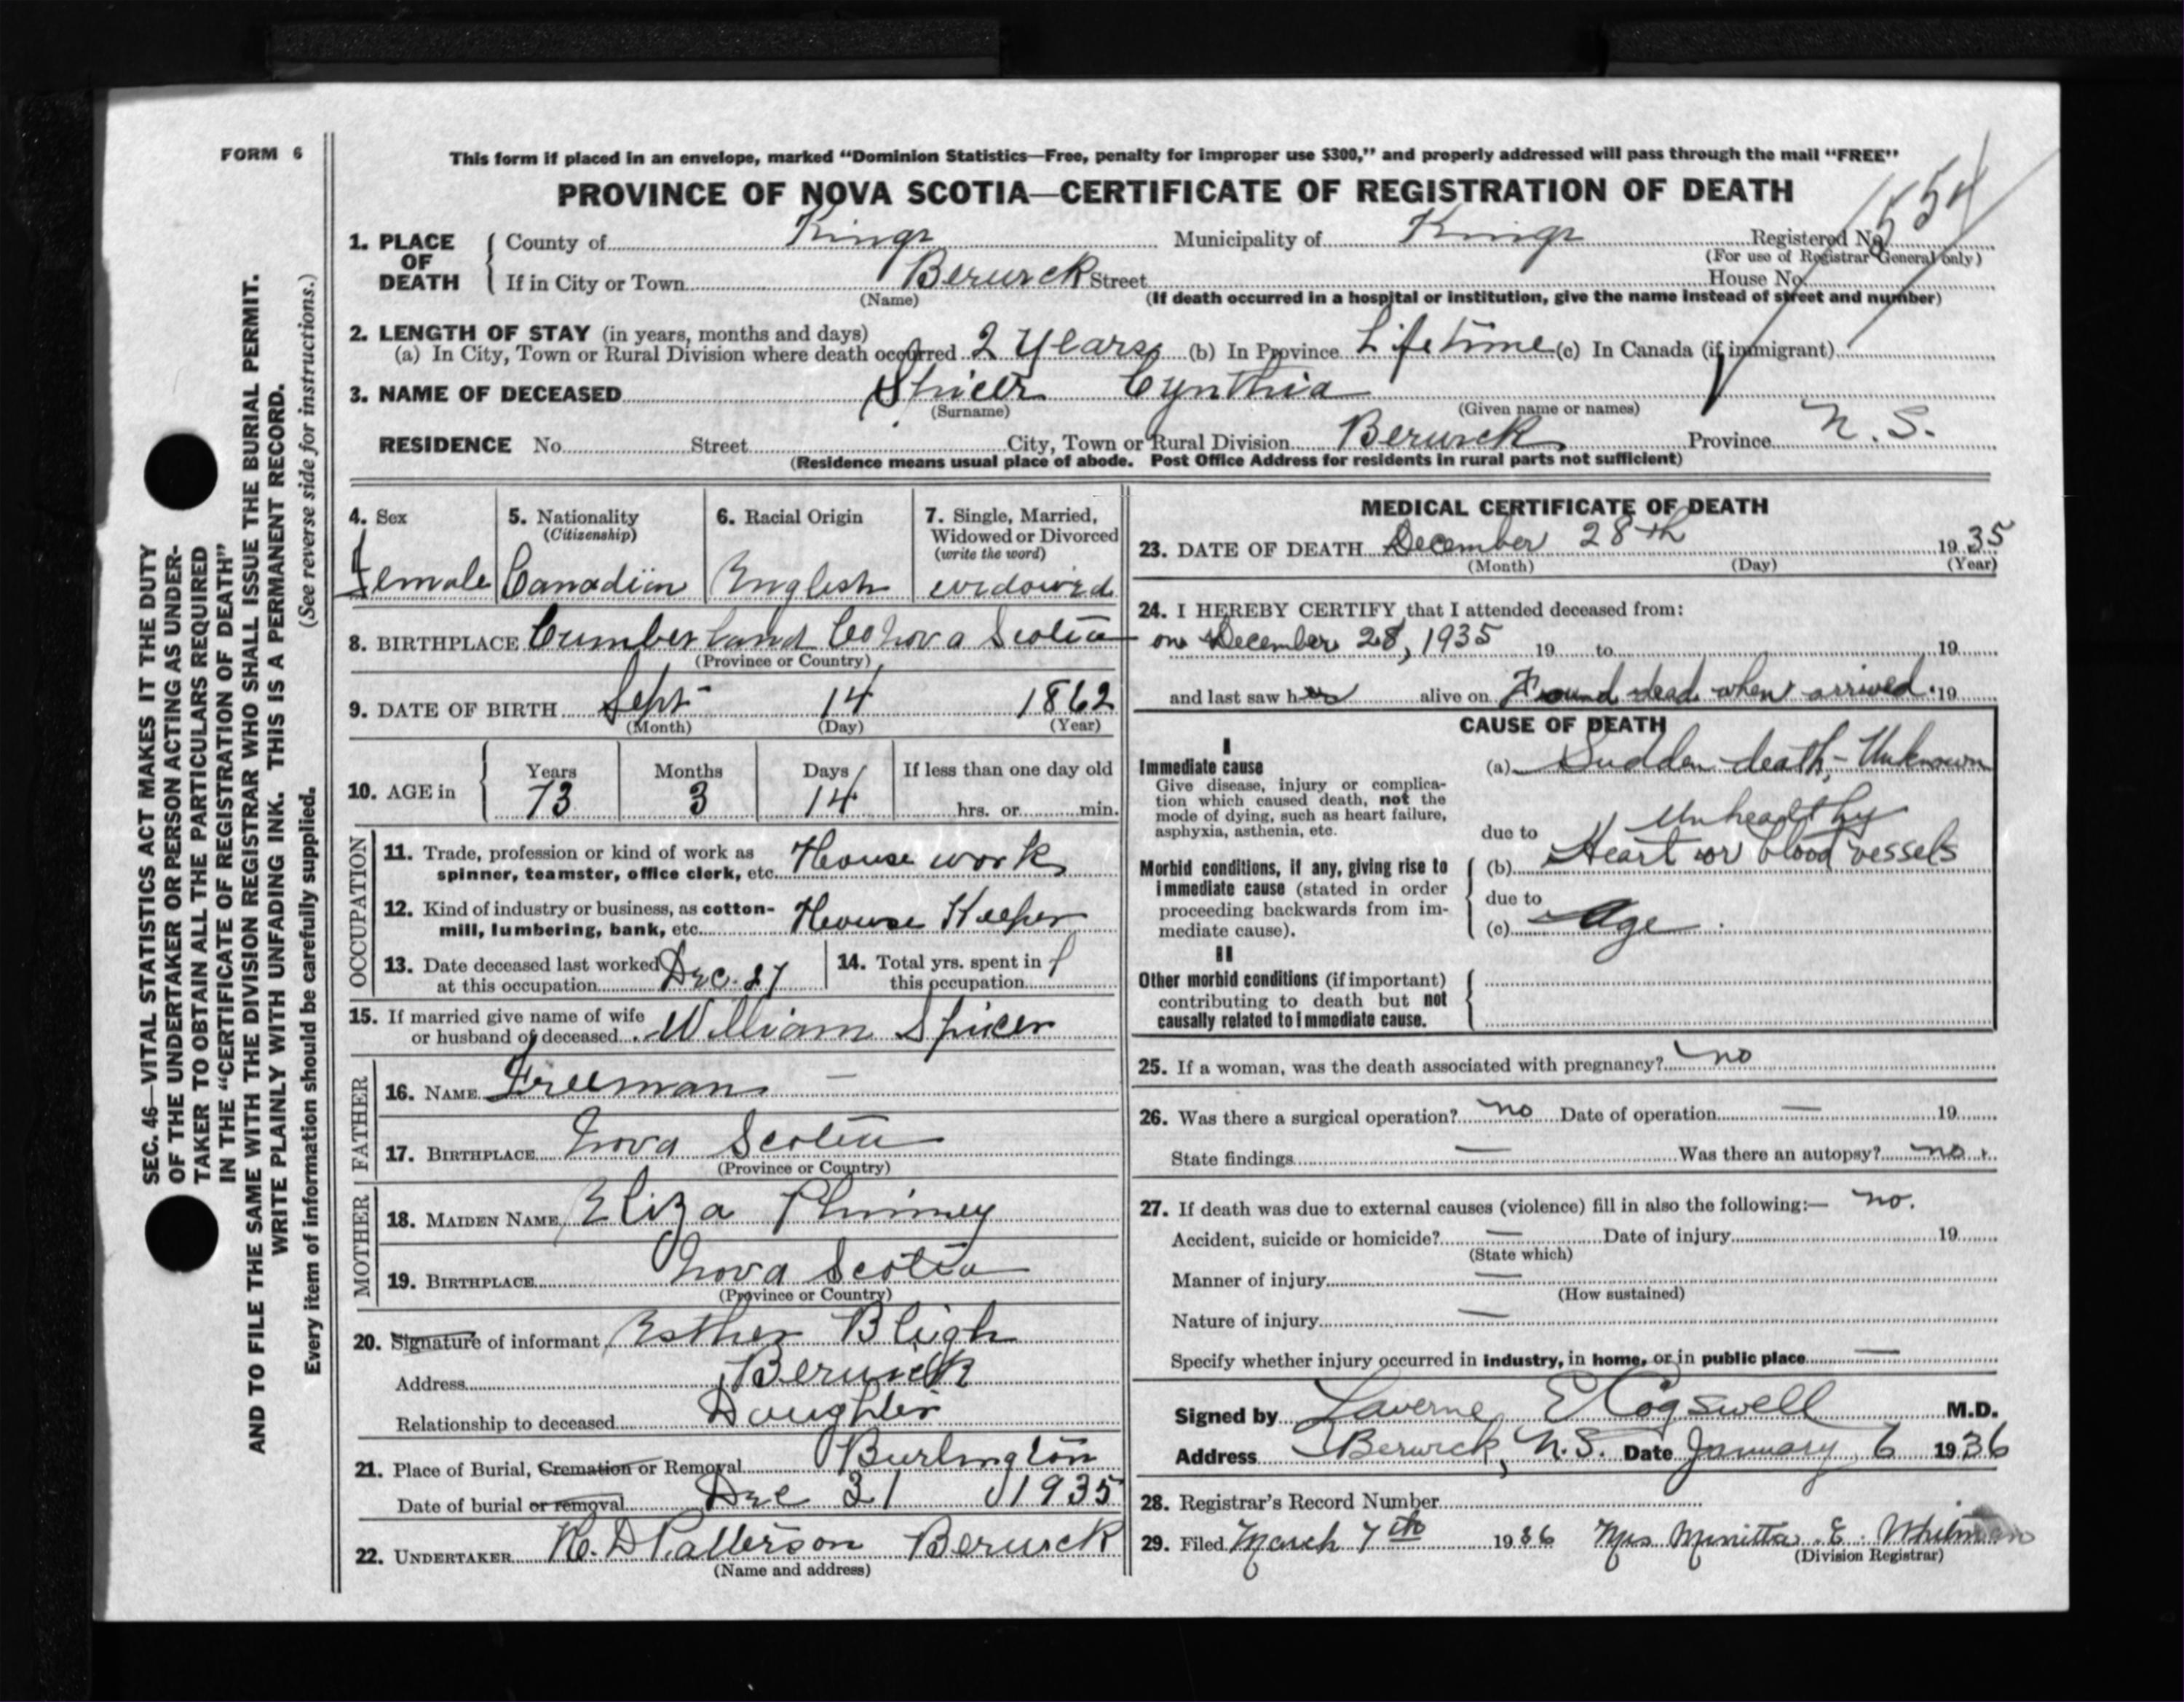 FORM 6
This form if placed in an envelope, marked “Dominion Statistics—Free, penalty for improper use $300,” and properly addressed will pass through the mail “FREE”
PROVINCE OF NOVA SCOTIA—CERTIFICATE OF REGISTRATION OF DEATH
1. PLACE OF DEATH County of Kings Municipality of Kings Registered No. 554
(For use of Registrar General only)
If in City or Town Berwick Street House No.
(Name) (If death occurred in a hospital or institution, give the name instead of street and number)
2. LENGTH OF STAY (in years, months and days)
(a) In City, Town or Rural Division where death occurred 2 Years (b) In Province Lifetime (c) In Canada (if immigrant)
3. NAME OF DECEASED Spicer Cynthia
(Surname) (Given name or names)
RESIDENCE No. Street City, Town or Rural Division Berwick Province N.S.
(Residence means usual place of abode. Post Office Address for residents in rural parts not sufficient)
4. Sex 5. Nationality 6. Racial Origin 7. Single, Married,
(Citizenship) Widowed or Divorced
(write the word)
Female Canadian English widowed
8. BIRTHPLACE Cumberland Co Nova Scotia
(Province or Country)
9. DATE OF BIRTH Sept 14 1862
(Month) (Day) (Year)
10. AGE in Years Months Days If less than one day old
73 3 14 hrs. or min.
OCCUPATION
11. Trade, profession or kind of work as
spinner, teamster, office clerk, etc. House work
12. Kind of industry or business, as cotton-
mill, lumbering, bank, etc. House Keeper
13. Date deceased last worked 14. Total yrs. spent in
at this occupation Dec. 27 this occupation
15. If married give name of wife
or husband of deceased William Spicer
FATHER
16. NAME Freeman —
17. BIRTHPLACE Nova Scotia
(Province or Country)
MOTHER
18. MAIDEN NAME Eliza Phinney
19. BIRTHPLACE Nova Scotia
(Province or Country)
20. Signature of informant Esther Bligh
Address Berwick
Relationship to deceased Daughter
21. Place of Burial, Cremation or Removal Burlington
Date of burial or removal Dec 31 1935
22. UNDERTAKER Patterson Berwick
(Name and address)
MEDICAL CERTIFICATE OF DEATH
23. DATE OF DEATH December 28th 1935
(Month) (Day) (Year)
24. I HEREBY CERTIFY that I attended deceased from:
on December 28, 1935 19 to 19
and last saw her alive on Found dead when arrived. 19
CAUSE OF DEATH
I
Immediate cause (a) Sudden death - Unknown
Give disease, injury or complica-
tion which caused death, not the
mode of dying, such as heart failure,
asphyxia, asthenia, etc.
due to Unhealthy
Morbid conditions, if any, giving rise to (b) Heart or blood vessels
immediate cause (stated in order
proceeding backwards from im- due to
mediate cause). (c) Age.
II
Other morbid conditions (if important)
contributing to death but not
causally related to immediate cause.
25. If a woman, was the death associated with pregnancy? no
26. Was there a surgical operation? no Date of operation — 19
State findings — Was there an autopsy? no.
27. If death was due to external causes (violence) fill in also the following:— no.
Accident, suicide or homicide? — Date of injury 19
(State which)
Manner of injury —
(How sustained)
Nature of injury —
Specify whether injury occurred in industry, in home, or in public place —
Signed by Laverne E Cogswell M.D.
Address Berwick, N.S. Date January 6 1936
28. Registrar's Record Number
29. Filed March 7th 1936 Mrs E.
(Division Registrar)
SEC. 46—VITAL STATISTICS ACT MAKES IT THE DUTY
OF THE UNDERTAKER OR PERSON ACTING AS UNDER-
TAKER TO OBTAIN ALL THE PARTICULARS REQUIRED
IN THE “CERTIFICATE OF REGISTRATION OF DEATH”
AND TO FILE THE SAME WITH THE DIVISION REGISTRAR WHO SHALL ISSUE THE BURIAL PERMIT.
WRITE PLAINLY WITH UNFADING INK. THIS IS A PERMANENT RECORD.
Every item of information should be carefully supplied. (See reverse side for instructions.)